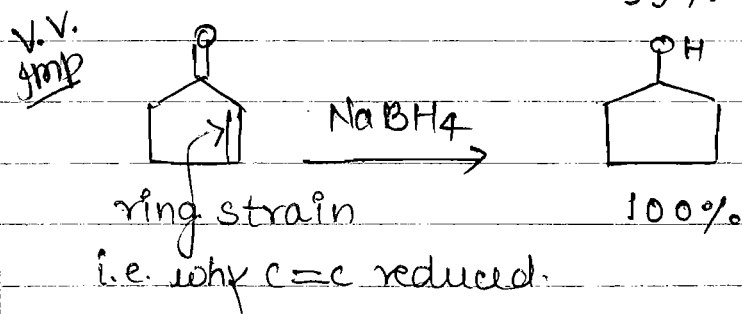 V.V.
Imp
O
OH
NaBH4
ring strain
100%
i.e. why c=c reduced.